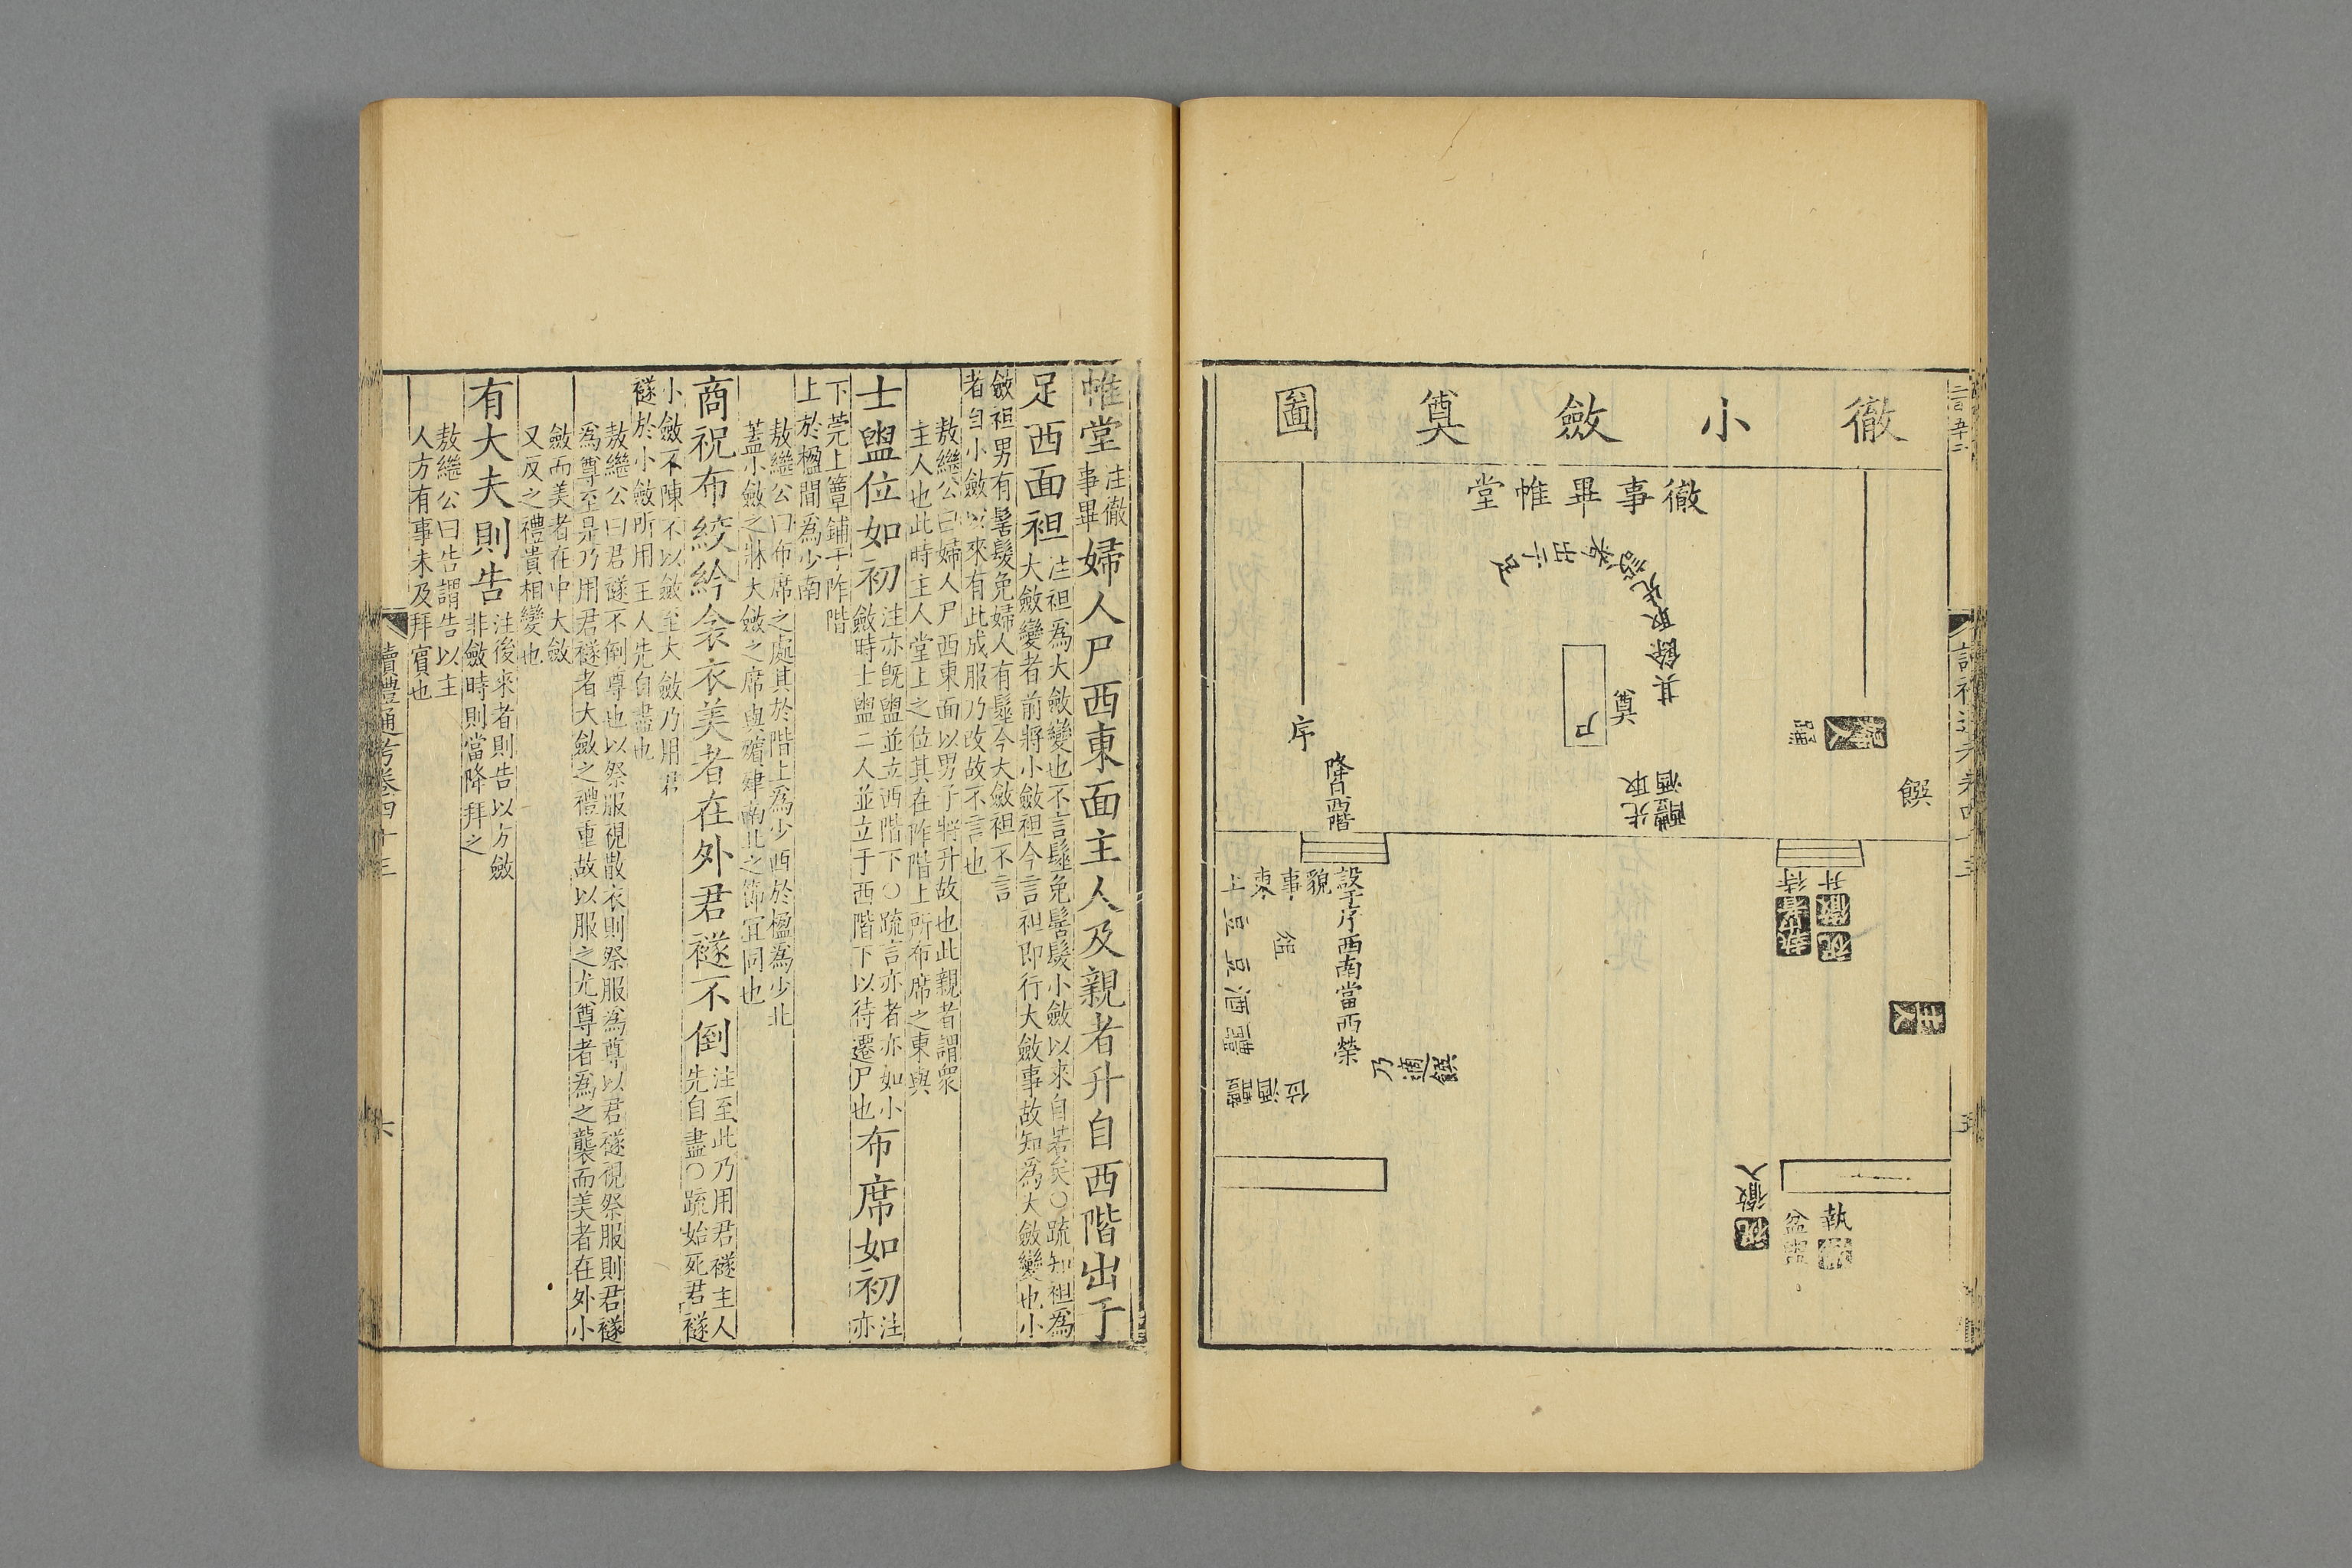 徹小斂奠圖
徹事畢帷堂
其餘取先設者出于足
奠
尸
序
饌
降自西階
醴酒
先取
設于序西南當西榮
乃適饌
俎
豆
豆
酒
醴
執事者待
祝徹升
祝徹入
帷堂注徹事畢婦人尸西東面主人及親者升自西階出于
足西面袒注袒為大斂變也不言髽免髺髮小斂以來自若矣○疏知袒為
大斂變者前將小斂袒今言袒即行大斂事故知為大斂變也小
斂袒男有髺髮免婦人有髽今大斂袒不言
者自小斂以來有此成服乃改故不言也
敖繼公曰婦人尸西東面以男子將升故也此親者謂眾
主人也此時主人堂上之位其在阼階上所布席之東與
士盥位如初注亦既盥並立西階下○疏言亦者亦如小
斂時士盥二人並立于西階下以待遷尸也布席如初注亦
下莞上簟鋪于阼階
上於楹間為少南
敖繼公曰布席之處其於階上為少西於楹為少北
蓋小斂之牀大斂之席與殯肂南北之節宜同也
商祝布絞紟衾衣美者在外君襚不倒注至此乃用君襚主人
先自盡○疏始死君襚
小斂不陳不以斂至大斂乃用君
襚於小斂所用主人先自盡也
敖繼公曰君襚不倒尊也以祭服視散衣則祭服為尊以君襚視祭服則君襚
為尊至是乃用君襚者大斂之禮重故以服之尤尊者為之襲而美者在外小
斂而美者在中大斂
又反之禮貴相變也
有大夫則告注後來者則告以方斂
非斂時則當降拜之
敖繼公曰告謂告以主
人方有事未及拜賓也
讀禮通考卷四十三
六